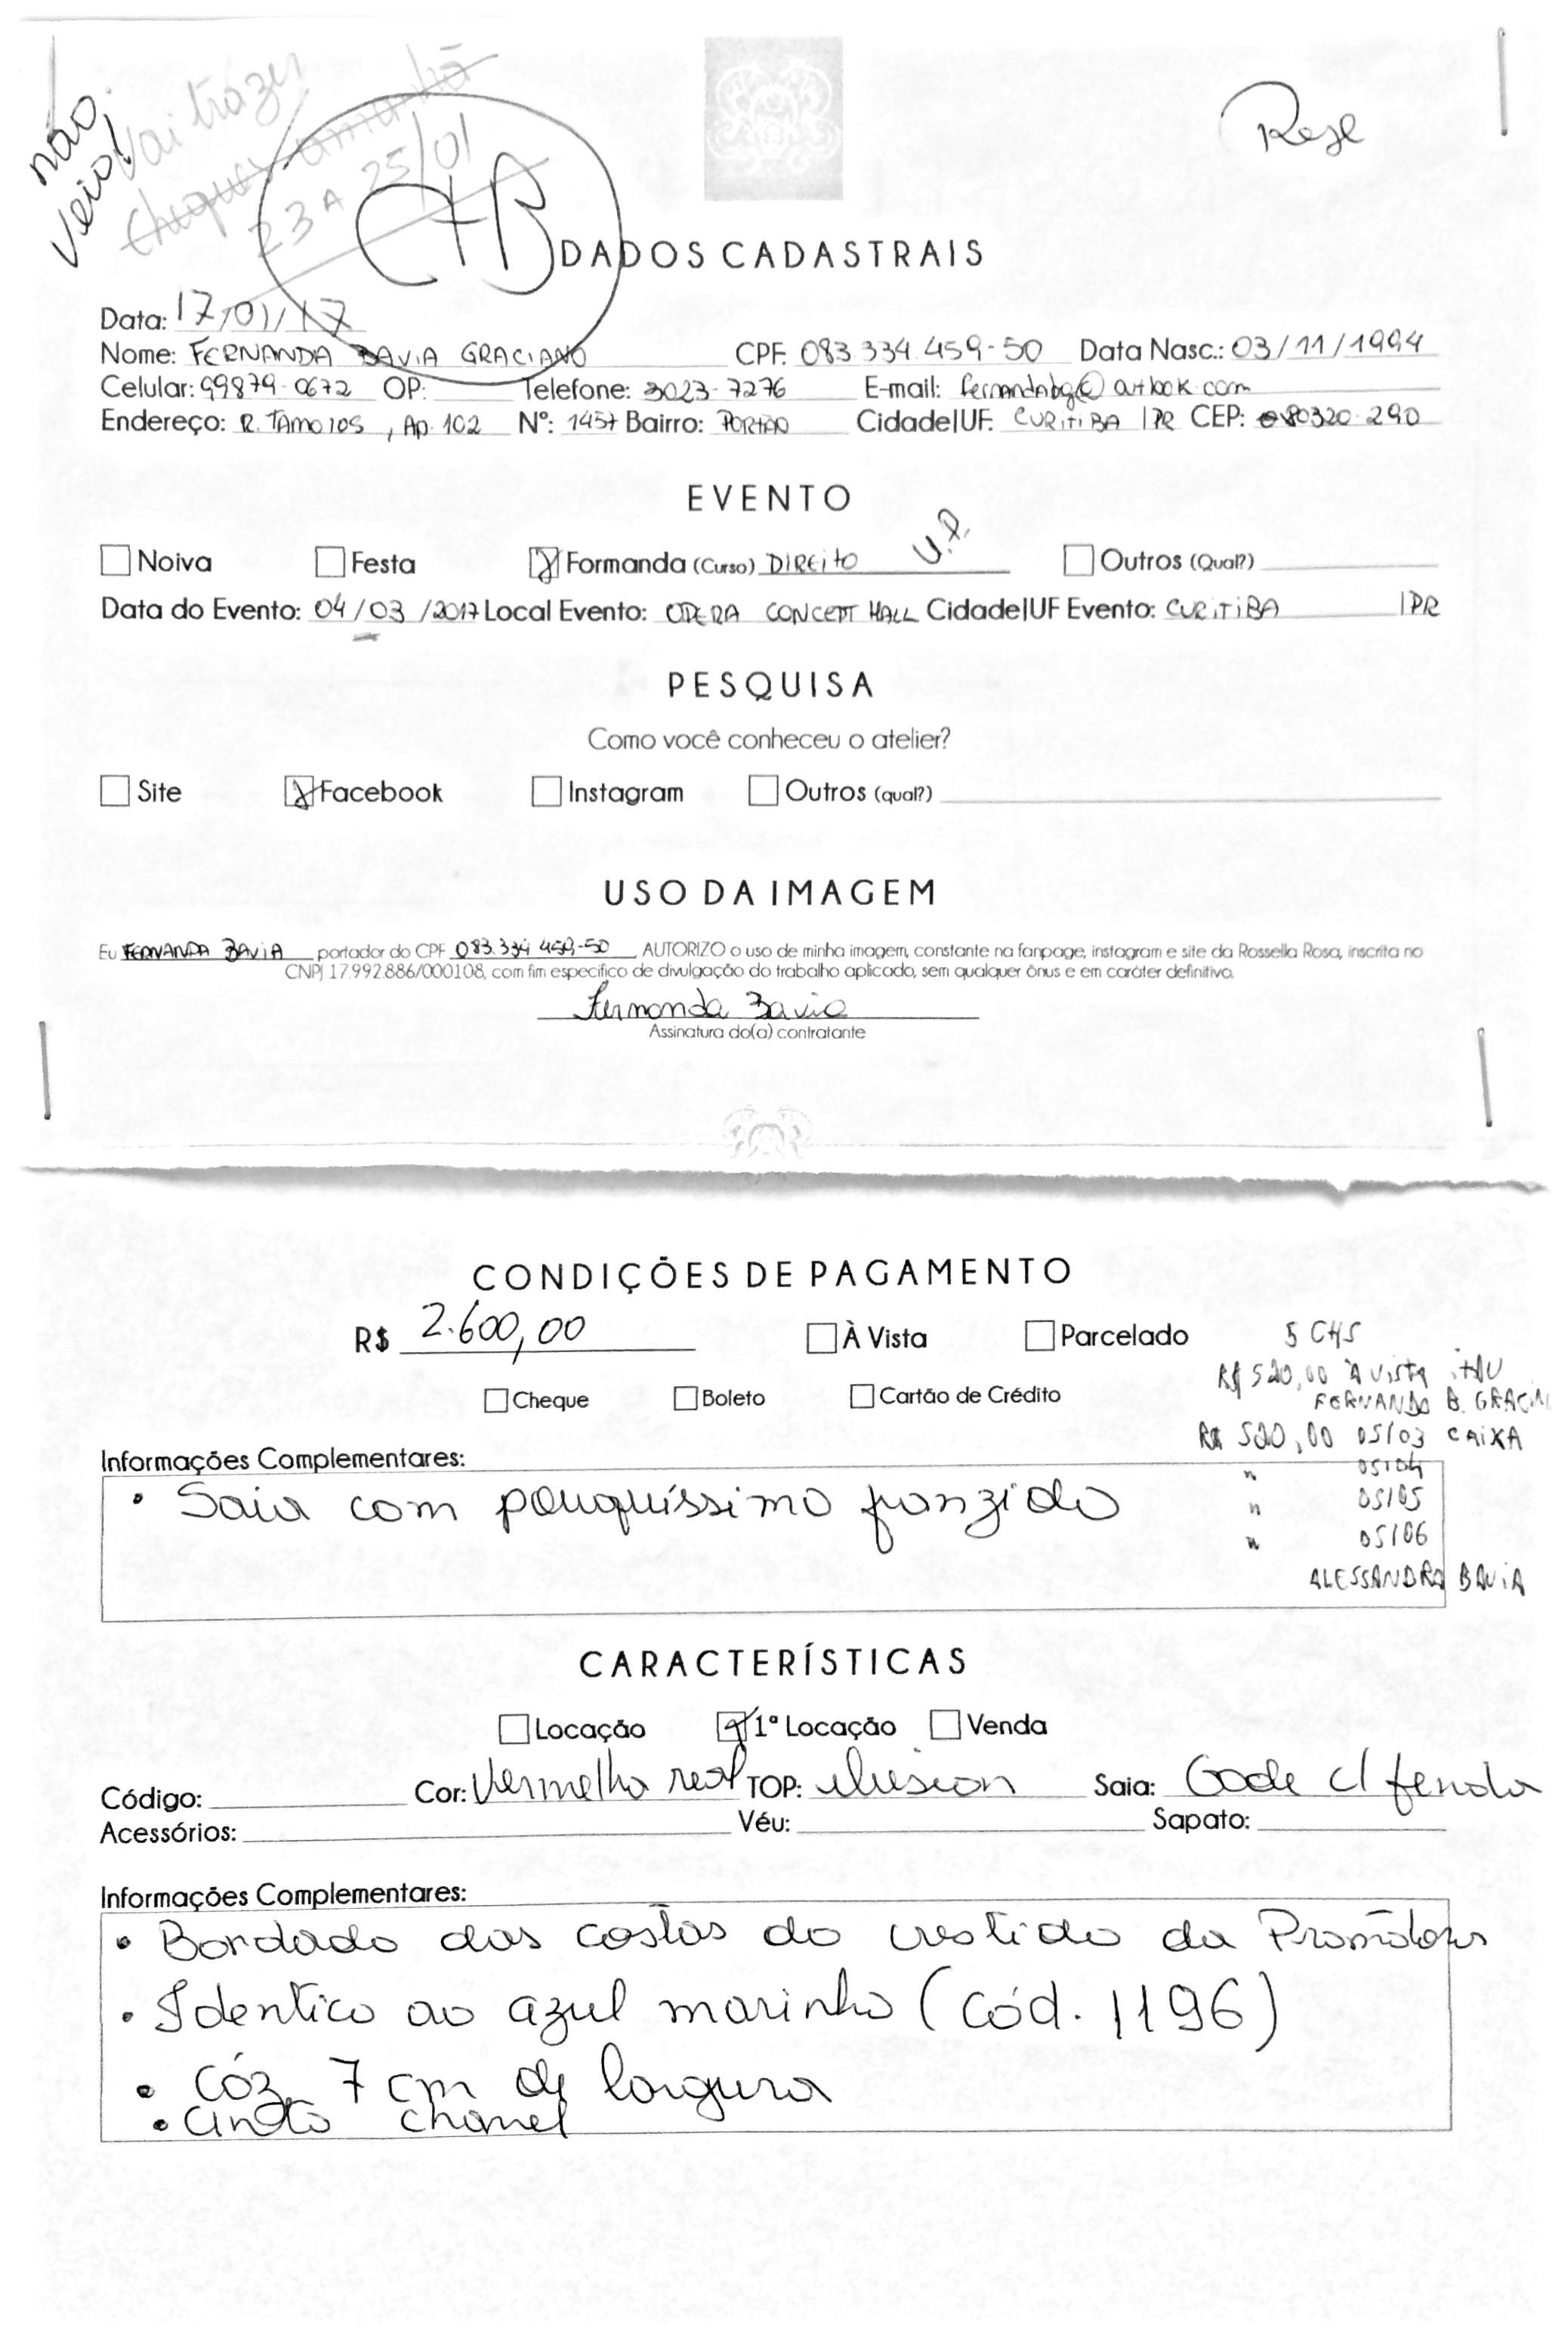 não
veio!
Vai trazer
cheques amanhã
23 A 25/01
Rose
DADOS CADASTRAIS
Data: 17/01/17
Nome: FERNANDA BAVIA GRACIANO CPF: 083.334.459-50 Data Nasc.: 03/11/1994
Celular: 99879-0672 OP: Telefone: 3023-7276 E-mail: fernandabg@outlook.com
Endereço: R. TAMOIOS, Ap. 102 Nº: 1457 Bairro: PORTÃO Cidade|UF: CURITIBA |PR CEP: 80320-290
EVENTO
Noiva Festa Formanda (Curso) DIREITO U.P. Outros (Qual?)
Data do Evento: 04/03/2017 Local Evento: OPERA CONCEPT HALL Cidade|UF Evento: CURITIBA |PR
PESQUISA
Como você conheceu o atelier?
Site Facebook Instagram Outros (qual?)
USO DA IMAGEM
Eu FERNANDA BAVIA portador do CPF 083.334 459-50, AUTORIZO o uso de minha imagem, constante na fanpage, instagram e site da Rossella Rosa, inscrita no
CNPJ 17.992.886/000108, com fim específico de divulgação do trabalho aplicado, sem qualquer ônus e em caráter definitivo.
Fernanda Bavia
Assinatura do(a) contratante
CONDIÇÕES DE PAGAMENTO
R$ 2.600,00 À Vista Parcelado 5 CHS
R$ 520,00 À VISTA ITAU
Cheque Boleto Cartão de Crédito FERNANDA B. GRACIA
R$ 520,00 05/03 CAIXA
Informações Complementares:
" 05/04
• Saia com pouquíssimo franzido
" 05/05
" 05/06
ALESSANDRA BAVIA
CARACTERÍSTICAS
Locação 1ª Locação Venda
Código: Cor: Vermelho real TOP: ilusion Saia: Gode c/ fenda
Acessórios: Véu: Sapato:
Informações Complementares:
• Bordado das costas do vestido da
• Identico ao azul marinho (cód. 1196)
• Cóz 7 cm de largura
• cinto chanel